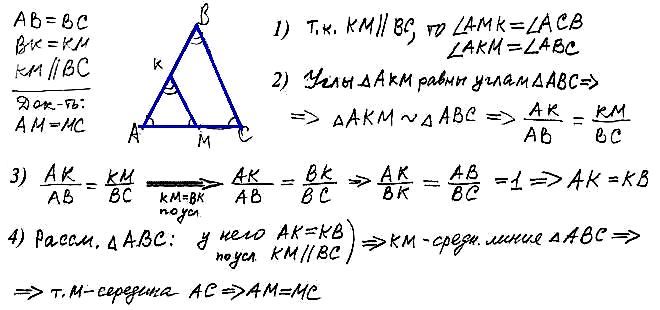 AB = BC
BK = KM
KM || BC
Док-ть:
AM = MC
B
K
A
M
C
1) Т.к. KM || BC, то ∠AMK = ∠ACB
∠AKM = ∠ABC
2) Углы △AKM равны углам △ABC ⇒
⇒ △AKM ~ △ABC ⇒ AK/AB = KM/BC
3) AK/AB = KM/BC ⟶ KM=BK по усл. AK/AB = BK/BC ⇒ AK/BK = AB/BC = 1 ⇒ AK = KB
4) Рассм. △ABC: у него AK=KB
по усл KM || BC) ⇒ KM - средн. линия △ABC ⇒
⇒ т. M - середина AC ⇒ AM = MC